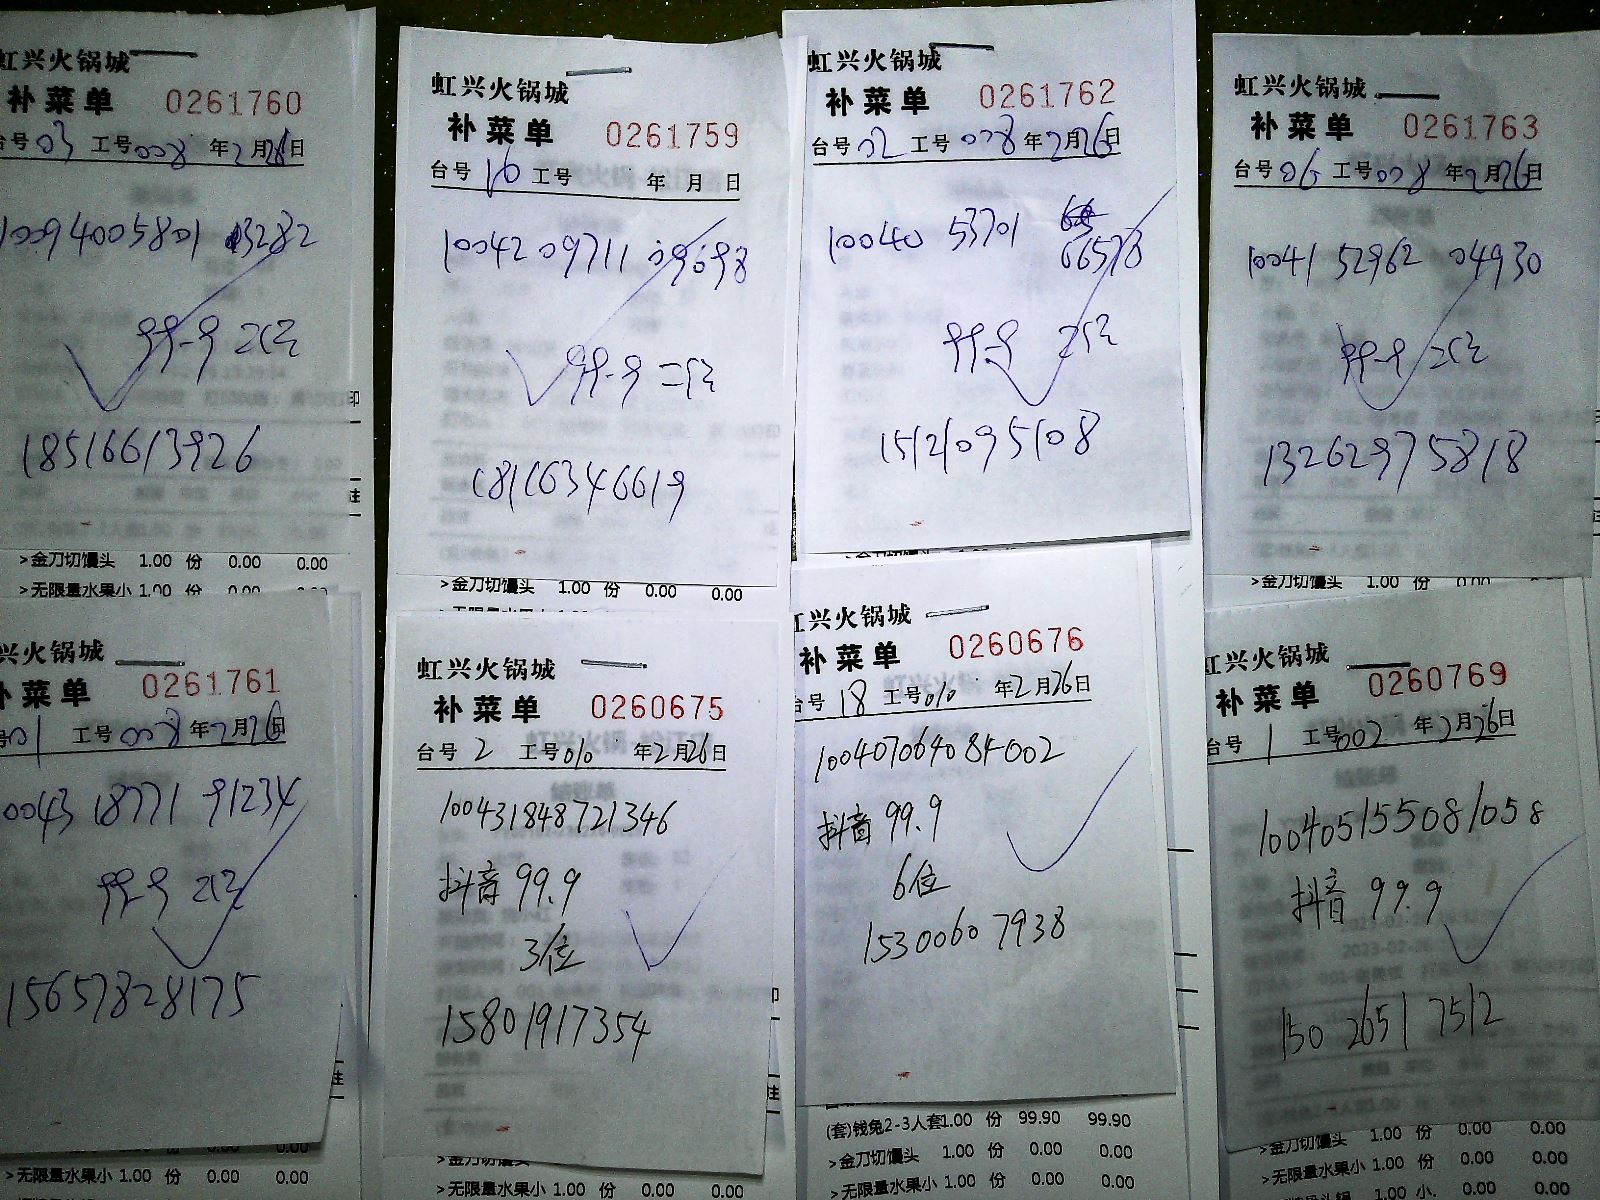 虹兴火锅城
补菜单 0261760
台号03 工号008 年2月26日
10094005801 3282
99-9 2位
18516613926
>金刀切馒头 1.00 份 0.00 0.00
>无限量水果小 1.00 份 0.00 0.00
虹兴火锅城
补菜单 0261759
台号 10 工号 年 月 日
10042 09711 09698
99-9 二位
18116346619
>金刀切馒头 1.00 份 0.00 0.00
虹兴火锅城
补菜单 0261762
台号02 工号008 年2月26日
10040 53701
66578
99-9 2位
15121095108
虹兴火锅城
补菜单 0261763
台号06 工号008 年2月26日
10041 52962 04930
99-9 2位
13262975818
>金刀切馒头 1.00 份 0.00
兴火锅城
补菜单 0261761
号01 工号008 年2月26日
10043 18771 91234
99-9 2位
15657828175
>无限量水果小 1.00 份 0.00 0.00
虹兴火锅城
补菜单 0260675
台号 2 工号010 年2月26日
100431848721346
抖音 99.9
3位
15801917354
>金刀切馒头
>无限量水果小 1.00 份 0.00 0.00
虹兴火锅城
补菜单 0260676
台号 18 工号010 年2月26日
100407064084002
抖音 99.9
6位
15300607938
(套)钱兔2-3人套1.00 份 99.90 99.90
>金刀切馒头 1.00 份 0.00 0.00
>无限量水果小 1.00 份 0.00 0.00
虹兴火锅城
补菜单 0260769
台号 1 工号002 年2月26日
100405155081058
抖音 99.9
150 2651 7512
>金刀切馒头 1.00 份 0.00 0.00
>无限量水果小 1.00 份 0.00 0.00